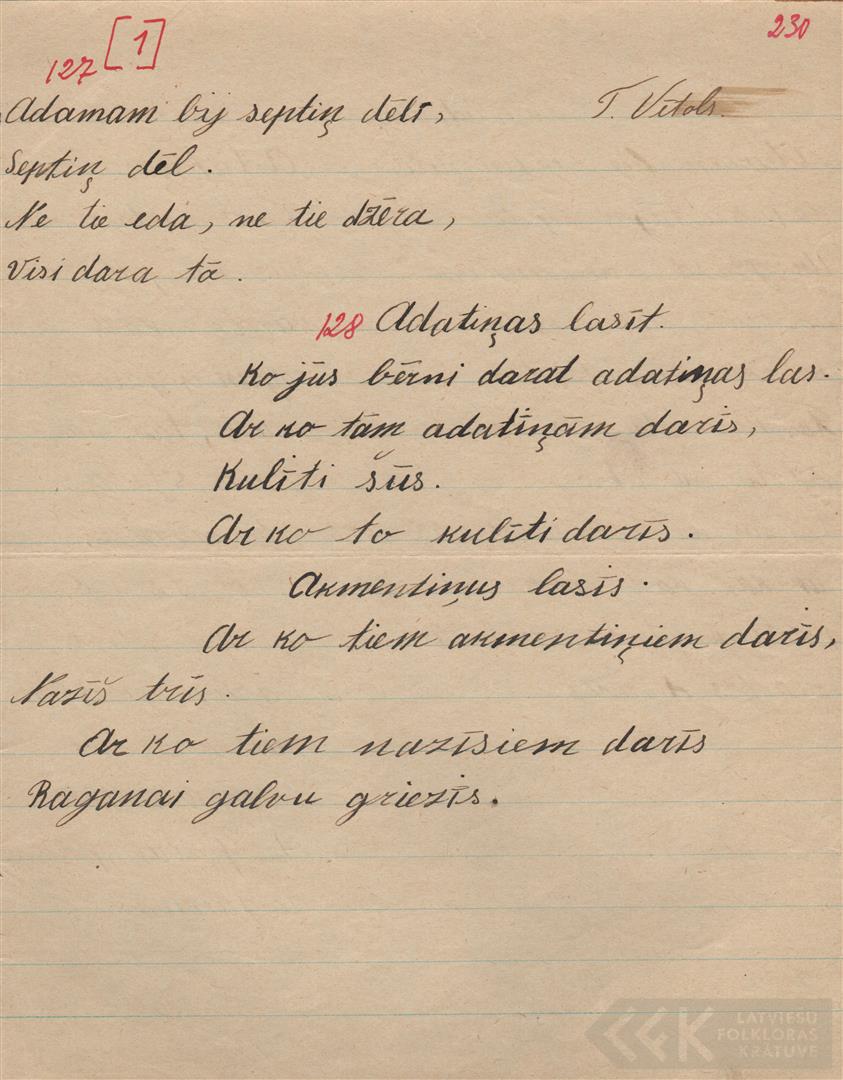 230
127 [1]
Adamam bij septiņ dēli, T. Vītols.
Septiņ dēl.
Ne tie eda, ne tie džēra,
Visi dara tā.
128 Adatiņas lasīt.
Ko jūs bērni darat adatiņas las.
Ar ko tām adatiņām darīs,
Kulīti šūs.
Ar ko to kulīti darīs.
Akmentiņus lasīs.
Ar ko tiem akmentiņiem darīs,
Nazīš trīs.
Ar ko tiem nazīsiem darīs
Raganai galvu griezīs.
LATVIEŠU
FOLKLORAS
KRĀTUVE